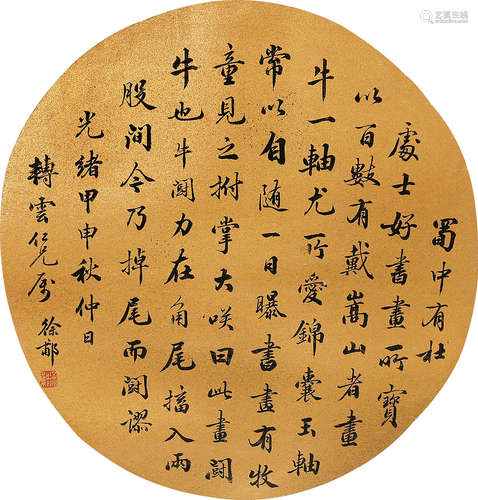 蜀中有杜
處士好書畫所寶
以百數有戴嵩山者畫
牛一軸尤所愛錦囊玉軸
常以自隨一日曝書畫有牧
童見之拊掌大咲曰此畫闘
牛也牛闘力在角尾搐入兩
股間今乃掉尾而闘謬
光緒甲申秋仲日
轉雲仁兄屬 徐郙